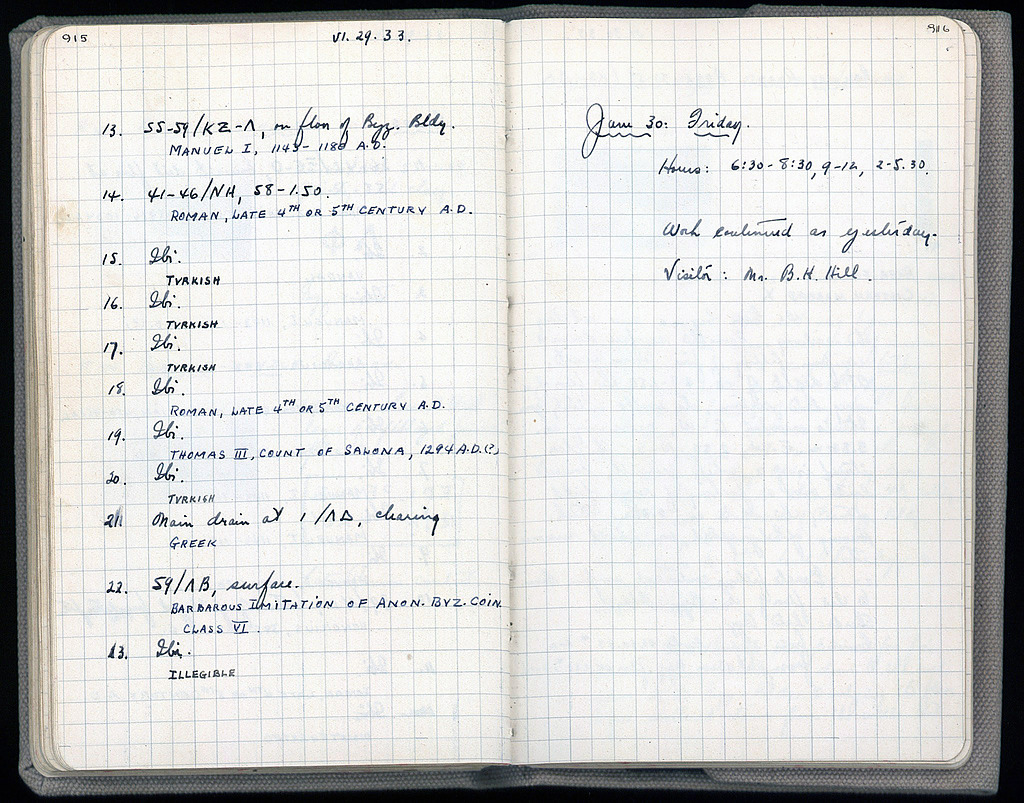 915
VI. 29. 33.
13. 55-59/ΚΖ-Λ, on floor of Byz. Bldg.
MANUEL I, 1143-1180 A.D.
14. 41-46/ΝΗ, 58-1.50.
ROMAN, LATE 4TH OR 5TH CENTURY A.D.
15. Ibi.
TVRKISH
16. Ibi.
TVRKISH
17. Ibi.
TVRKISH
18. Ibi.
ROMAN, LATE 4TH OR 5TH CENTURY A.D.
19. Ibi.
THOMAS III, COUNT OF SALONA, 1294 A.D.(?)
20. Ibi.
TVRKISH
21. Main drain at 1/ΛΔ, clearing
GREEK
22. 59/ΛΒ, surface.
BARBAROUS IMITATION OF ANON. BYZ. COIN
CLASS VI.
23. Ibi.
ILLEGIBLE
916
June 30: Friday.
Hours: 6:30-8:30, 9-12, 2-5.30.
Work continued as yesterday.
Visitor: Mr. B.H. Hill.